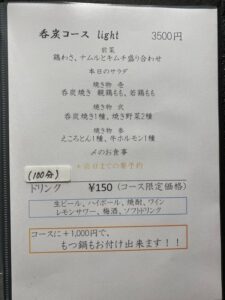 呑炭コース light 3500円
前菜
鶏わさ、ナムルとキムチ盛り合わせ
本日のサラダ
焼き物 壱
呑炭焼き 親鶏もも、若鶏もも
焼き物 弐
呑炭焼き1種、焼き野菜2種
焼き物 参
えころとん1種、牛ホルモン1種
〆のお食事
＊前日までの要予約
(100分)
ドリンク ¥150（コース限定価格）
生ビール、ハイボール、焼酎、ワイン
レモンサワー、梅酒、ソフトドリンク
コースに＋1,000円で、
もつ鍋もお付け出来ます！！